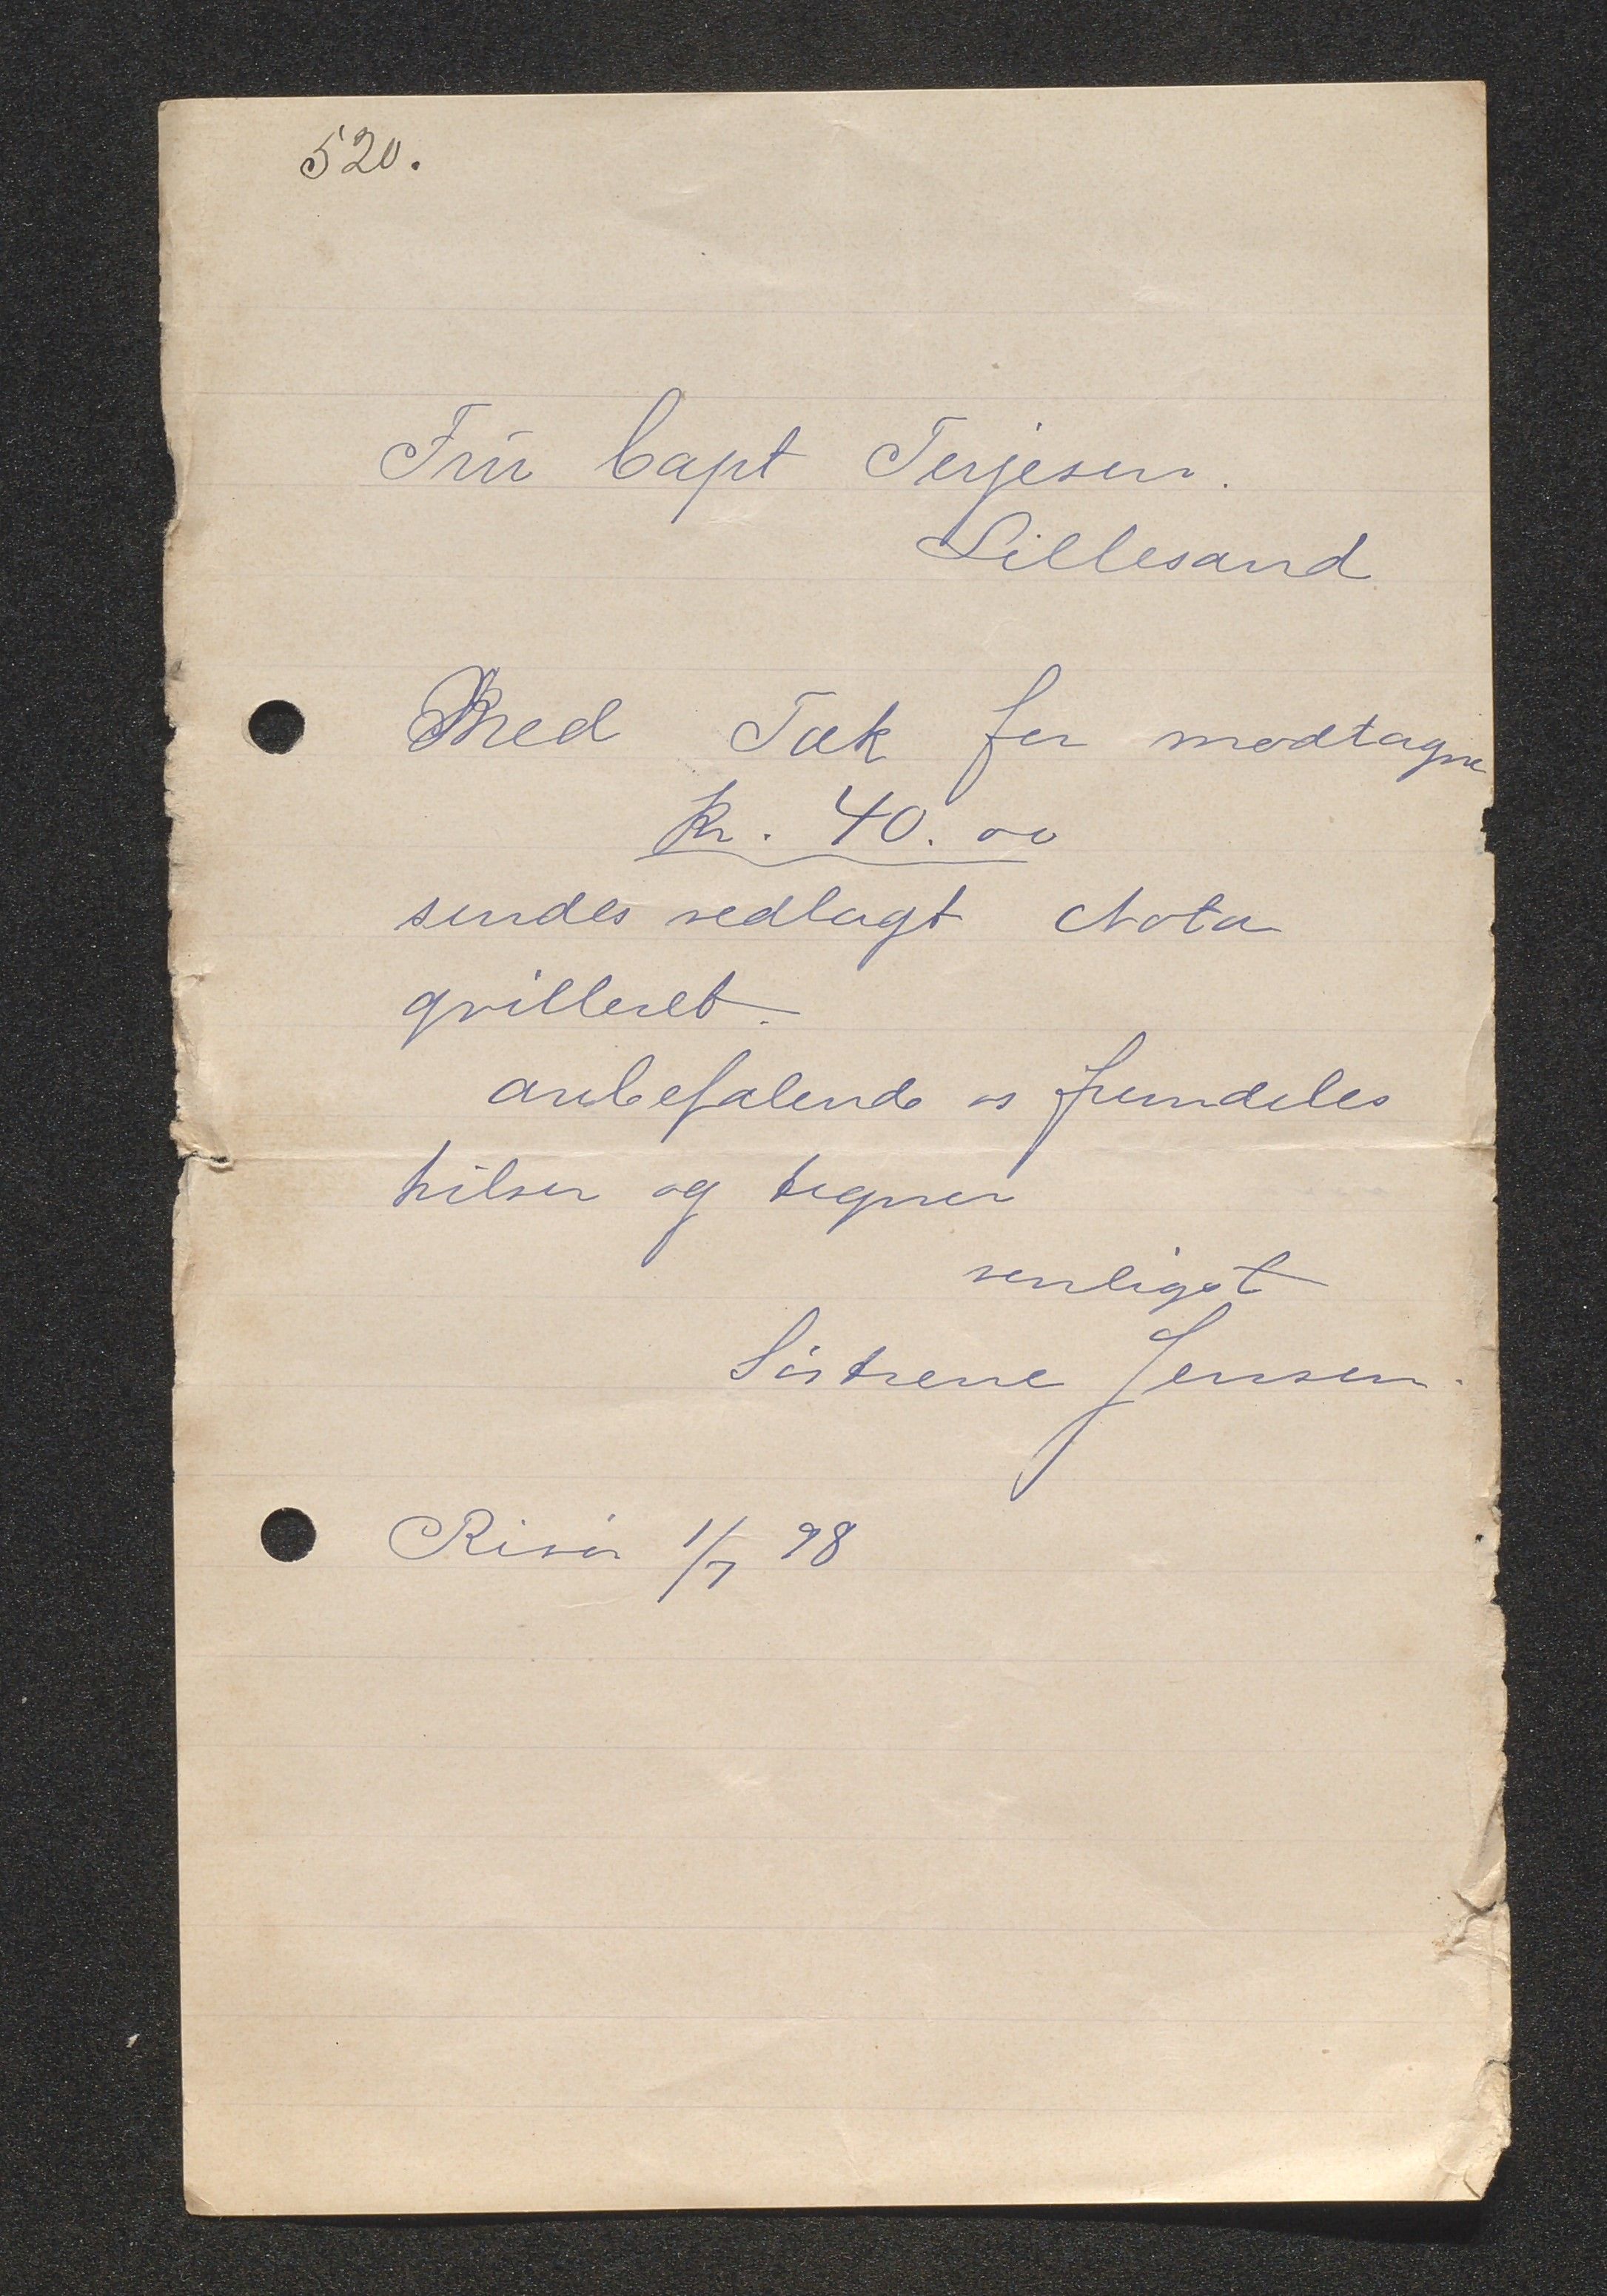 520.
Frü Capt Terjesen.
Lillesand
Med Tak for modtagne
Kr. 40.00
sendes vedlagt Nota
qvitteret.
anbefalende os fremdeles
hilser og tegner
venligst
Söstrene Jensen.
Risör 1/7 98